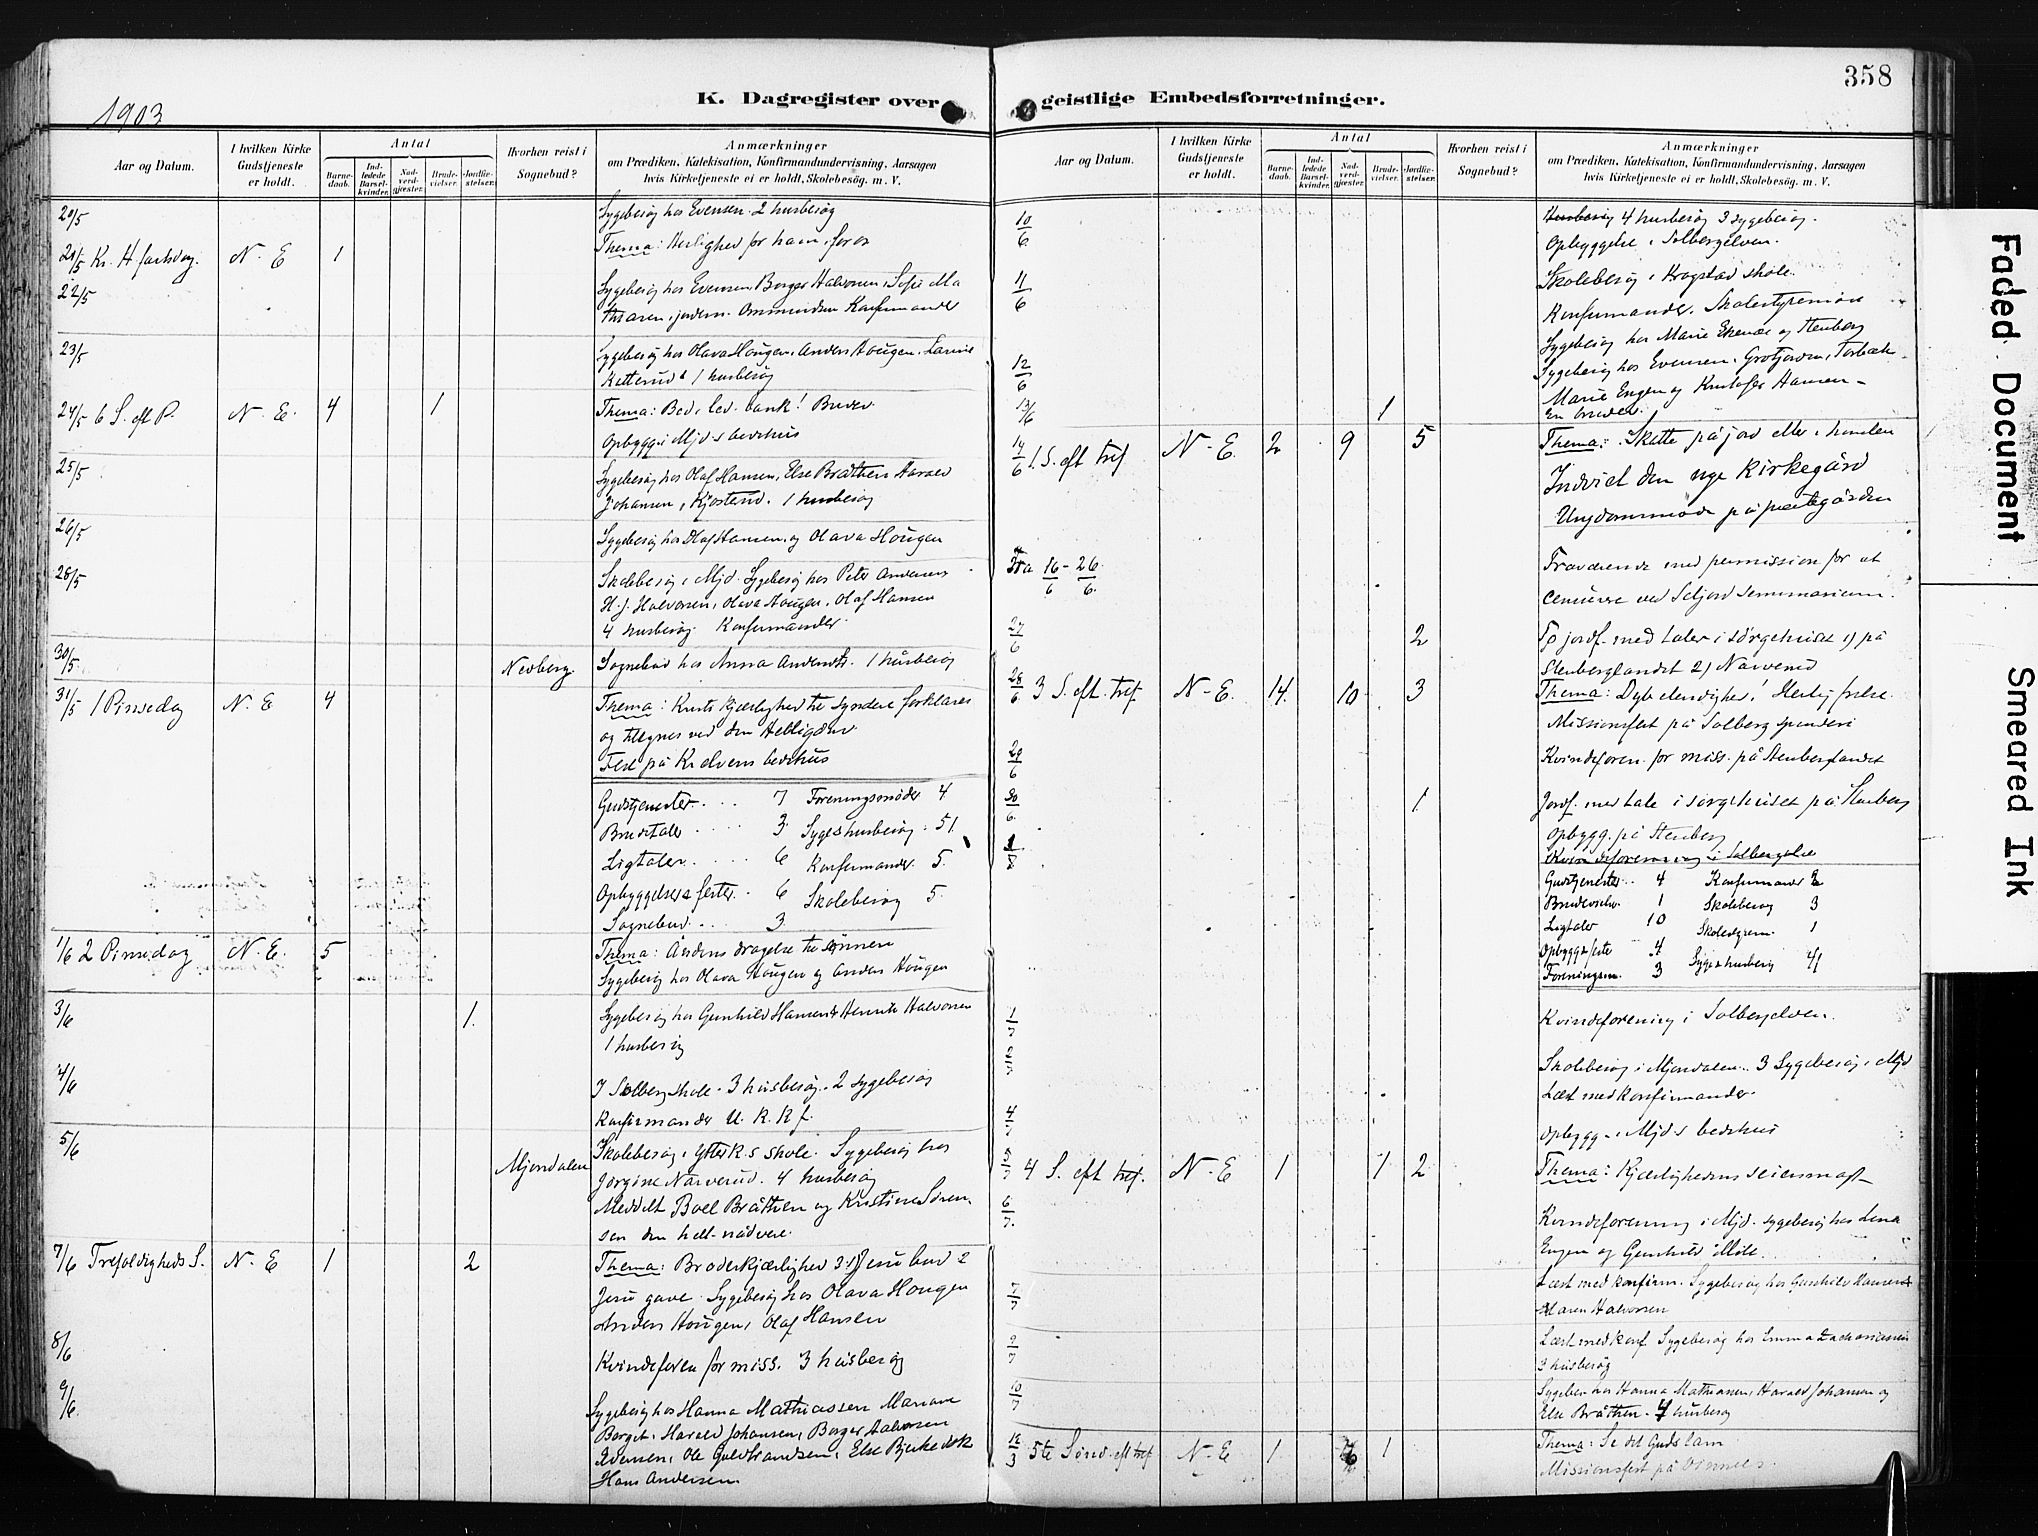 1903
K. Dagregister over geistlige Embedsforretninger.
358
Aar og Datum.
I hvilken Kirke Gudstjeneste er holdt.
Antal
Barne-daab.
Ind-ledede Barsel-kvinder.
Nad-verd-gjæster.
Brude-vielser.
Jordfæ-stelser.
Hvorhen reist i Sognebud?
Anmærkninger
om Prædiken, Katekisation, Konfirmandundervisning, Aarsagen
hvis Kirketjeneste ei er holdt, Skolebesøg. m. V.
20/5 Sygebesøg hos Evensen. 2 husbesøg
21/5 Kr. H. fartsdag. N. E 1 Thema: Herlighed for ham, for os
22/5 Sygebesøg hos Evensen, Borger Halvorsen, Sofie Ma
thisen, Konfirmander
23/5 Sygebesøg hos Olava Hougen, Anders Hougen,
1 husbesøg
24/5 6 S. eft P. N. E. 4 1 Thema: Bed, lev, tank! Bruder.
Opbygg. i Mjd s bedehus
25/5 Sygebesøg hos Olaf Hansen, Else Bråthen Harald
Johansen, Kjøsterud. 1 husbesøg
26/5 Sygebesøg hos Olaf Hansen, og Olava Hougen
28/5 Skolebesøg i Mjd. Sygebesøg hos Peter Andersen
H. J. Halvorsen, Olava Hougen, Olaf Hansen
4 husbesøg. Konfirmander.
30/5 Nedberg. Sognebud hos Anna 1 husbesøg
31/5 1 Pinsedag N. E 4 Thema: Kristi kjærlighed til syndere forklares
og tilegnes ved den Helligånd
Fest på Kr elvens bedehus
Gudstjenester 7 Foreningsmøder 4
Brudetaler 3. Syge & husbesøg 51.
Ligtaler 6 Konfirmander 5.
Opbyggelser & fester 6 Skolebesøg 5.
Sognebud 3.
1/6 2 Pinsedag N. E. 5 Thema: Åndens dragelse til sønnen
Sygebesøg hos Olava Hougen og Anders Hougen
3/6 1. Sygebesøg hos Gunhild Hansen & Henrik Halvorsen
1 husbesøg
4/6 I Solberg skole. 3 husbesøg. 2 sygebesøg
Konfirmander U. K. K f.
5/6 Mjøndalen Skolebesøg i Ytterk.s skole. Sygebesøg hos
Jorgine Narverud. 4 husbesøg
Meddelt Boel Bråthen og Kristine Søren
sen den hell. nadvere.
7/6 Trefoldigheds S. N. E 1 2 Thema: Broderkjærlighed 1) Jesu bud 2
Jesu gave. Sygebesøg hos Olava Hougen
Anders Hougen, Olaf Hansen
8/6 Kvindeforen for miss. 3 husbesøg
9/6. Sygebesøg hos Hanna Mathiassen
Harald Johansen, Borger Halvorsen
Evensen, Ole Guldbrandsen, Else
Hans Andersen.
Aar og Datum.
I hvilken Kirke Gudstjeneste er holdt.
Antal
Barne-daab.
Ind-ledede Barsel-kvinder.
Nad-verd-gjæster.
Brude-vielser.
Jordfæ-stelser.
Hvorhen reist i Sognebud?
Anmærkninger
om Prædiken, Katekisation, Konfirmandundervisning, Aarsagen
hvis Kirketjeneste ei er holdt, Skolebesøg. m. V.
10/6 Husbesøg 4 husbesøg 3 sygebesøg.
Opbyggelse i Solbergelven.
11/6 Skolebesøg i Krogstad skole.
Konfirmander. Skolestyremøde
Sygebesøg hos Marie Ekenæs og Stenberg
12/6 Sygebesøg hos Evensen,
Marie Engen og Kristofer Hansen
13/6 1 En brudev.
14/6 1. S. eft tref N-E. 2 9 5 Thema: Skatte på jord eller i himlen
Indviet den nye kirkegård
Ungdomsmøde på prestegården
Fra 16/6 - 26/6. Fraværende med permission for at
censurere ved Seljord Seminarium.
27/6 2 To jordf. med taler i sørgehuset 1) på
Stenberglandet 2) Narverud
28/6 3 S. eft. tref. N-E. 14. 10 3 Thema: Dyb elendighed! Herlig frelse.
Missionsfest på Solberg spinderi
29/6 Kvindeforen. for miss. på Stenberglandet
30/6. 1 Jordf. med tale i sørgehuset på Stenberg
Opbygg. på Stenberg
Kvindeforening i Solbergelv
Gudstjenester 4 Konfirmander 2
Brudevielser 1 Skolebesøg 3
Ligtaler 10 Skolestyrem. 1
Opbygg & feste 4 Syge & husbesøg 41
Foreningsm. 3
1/7 Kvindeforening i Solbergelven.
Skolebesøg i Mjøndalen. 3 Sygebesøg i Mjd
Læst med konfirmander.
4/7 Opbygg. i Mjd s bedehus
5/7 4 S. eft tref. N-E 1 1 2 Thema: Kjærlighedens seiersmagt
6/7. Kvindeforening i Mjd. sygebesøg hos Lena
Engen og Gunhild
7/7 Læst med konfirm. Sygebesøg hos Gunhild Hansen &
Maren Halvorsen
9/7 Læst med konf. Sygebesøg hos Emma Zachariassen
3 husbesøg
10/7 Sygebes. hos Hanna Mathiasen, Harald Johansen og
Else Bråthen. 4 husbesøg
5te Sønd. eft tref N-E 1. 1 Thema: Se det Guds lam
Missionsfest på
Faded Document
Smeared Ink